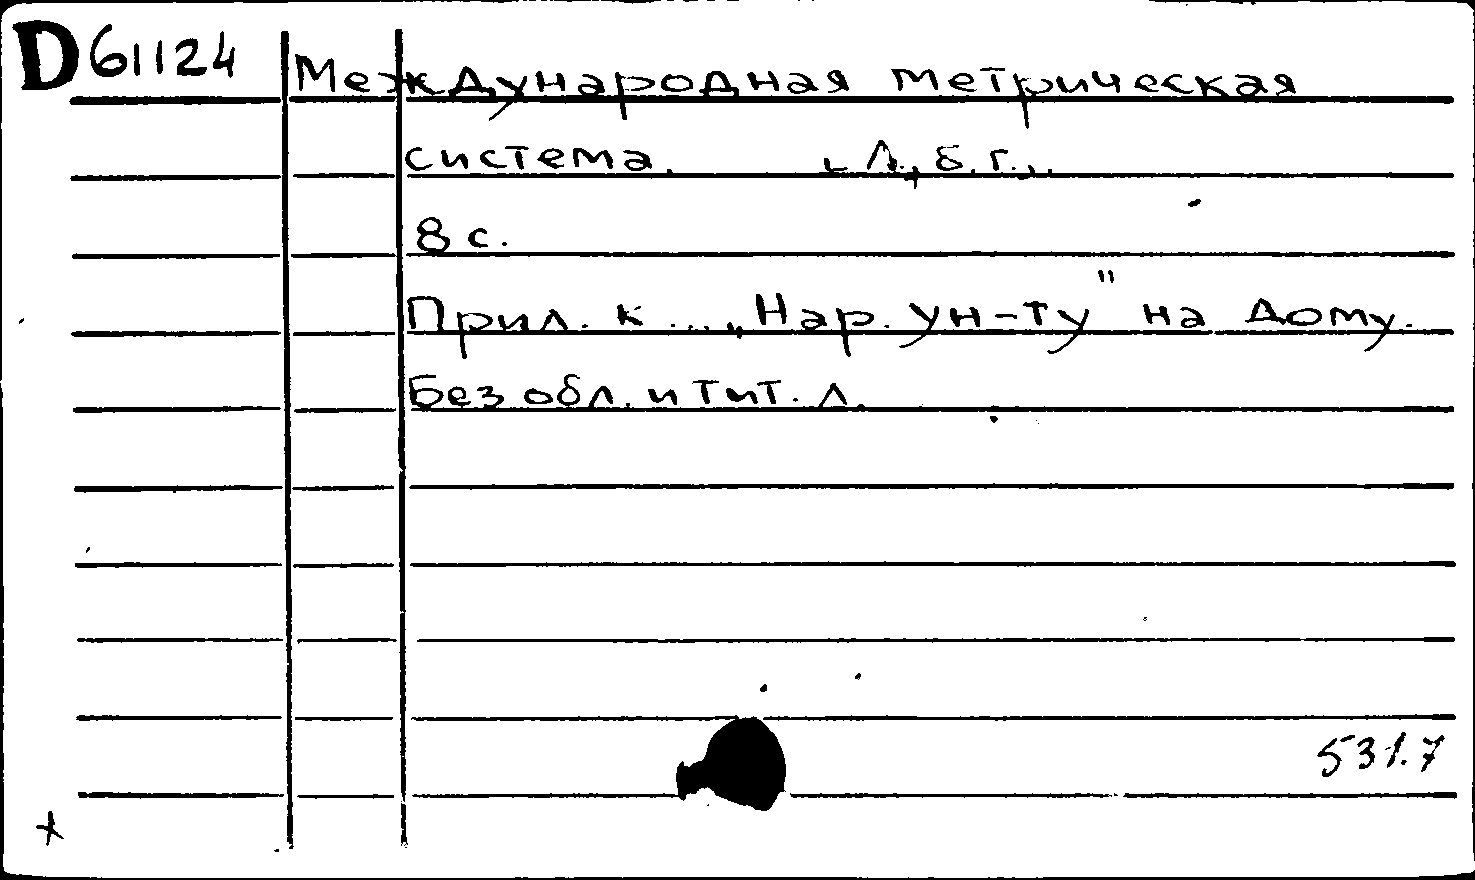 D 61124 Международная метрическая
система. [Л., б. г.].
8 с.
Прил. к ... „Нар. ун-ту" на дому.
Без обл. и тит. л.
531.7